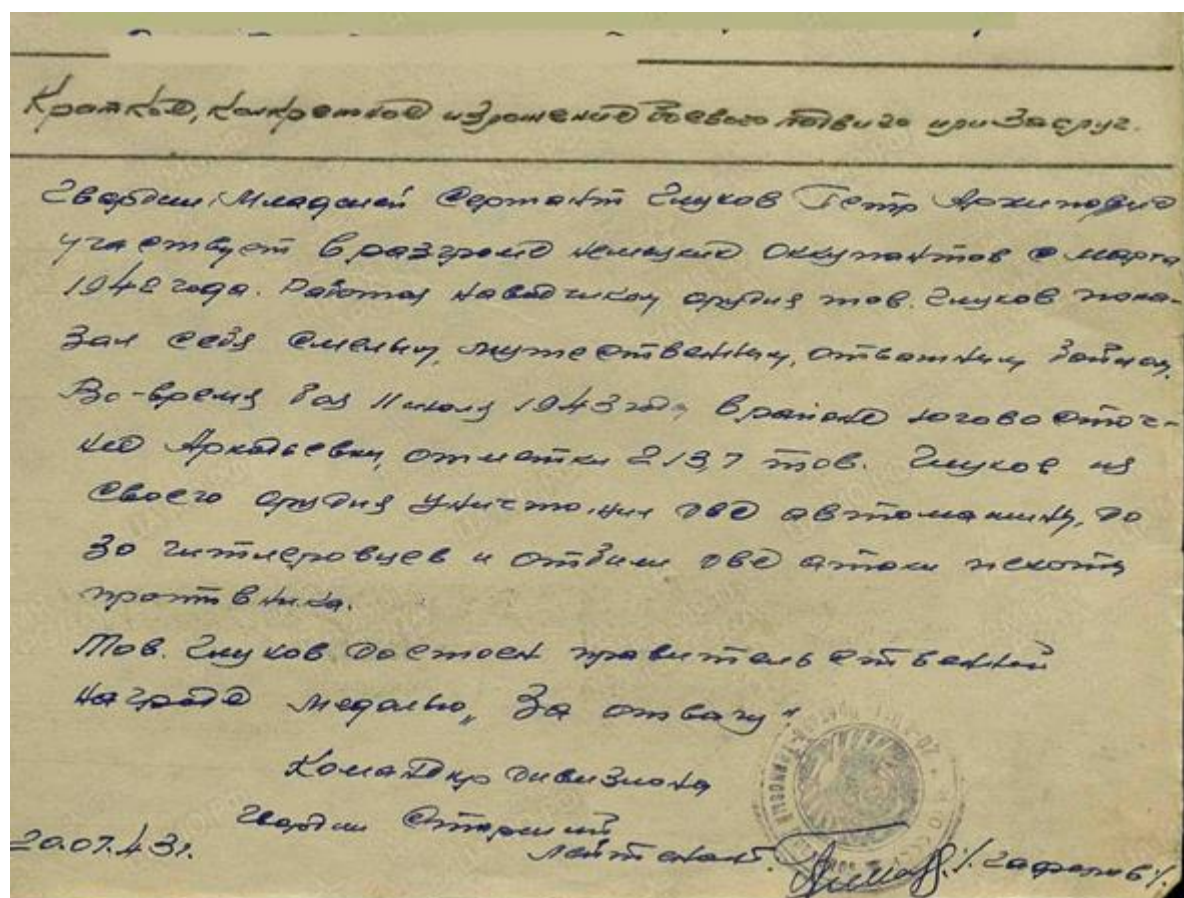 Краткое, конкретное изложение боевого подвига или заслуг.
Гвардии Младший сержант Глухов Петр Архипович
участвует в разгроме немецких оккупантов с марта
1942 года. Работая наводчиком орудия тов. Глухов пока-
зал себя смелым, мужественным, отважным воином.
Во-время боя 11 июля 1943 года в районе юговосточ-
нее Аркадьевки, отметки 213,7 тов. Глухов из
своего орудия уничтожил две автомашины, до
30 гитлеровцев и отбили две атаки пехоты
противника.
Тов. Глухов достоен правительственной
награде медалью „За отвагу“.
Командир дивизиона
Гвардии Старший
20.07.43г. лейтенант.